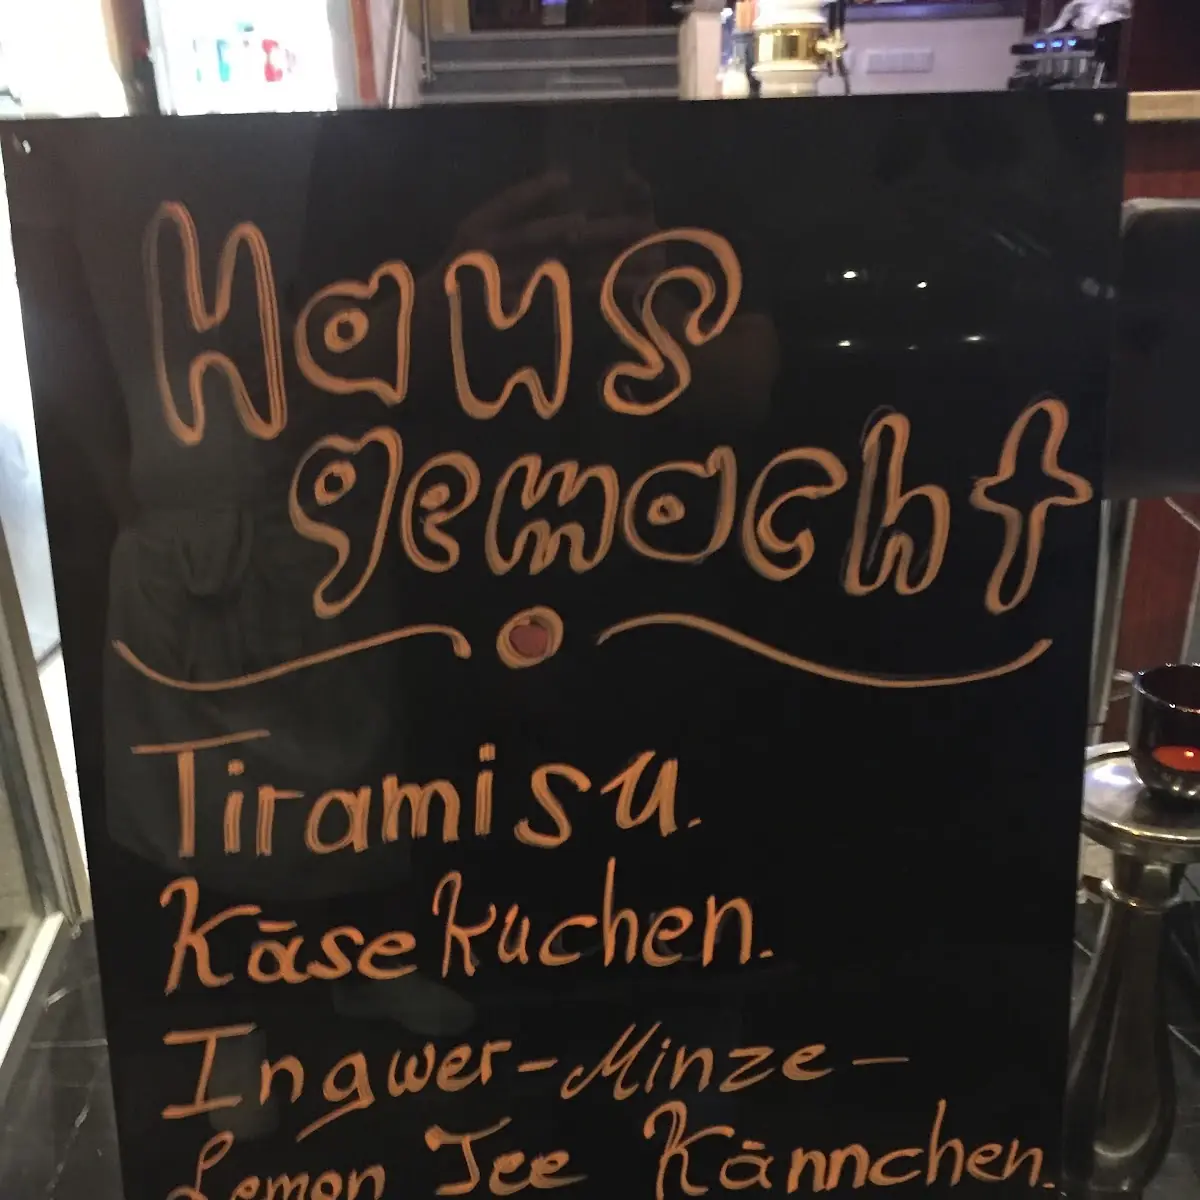 Haus
gemacht
Tiramisu.
Käse Kuchen.
Ingwer-Minze-
Lemon Tee Kännchen.